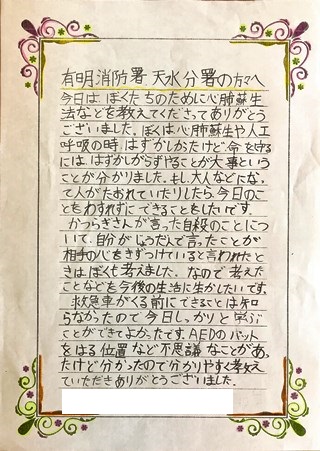 有明消防署 天水分署の方々へ
今日は、ぼくたちのために心肺蘇生
法などを教えてくださってありがとう
ございました。ぼくは心肺蘇生や人工
呼吸の時、はずかしかったけど命を守る
には、はずかしがらずやることが大事という
ことが分かりました。もし大人などにな
て人がたおれていたりしたら、今日のこ
とをわすれずにできることをしたいです。
かつらぎさんが言った自殺のことにつ
いて、自分がじょうだんで言ったことが
相手の心をきずつけていると言われたと
きはぼくも考えました。なので考えた
ことなどを今後の生活に生かしたいです。
救急車がくる前にできることは知
らなかったので今日しっかりと学ぶ
ことができてよかったです。AEDのパット
をはる位置など不思議なことがあっ
たけど分かったので分かりやすく教え
ていただきありがとうございました。